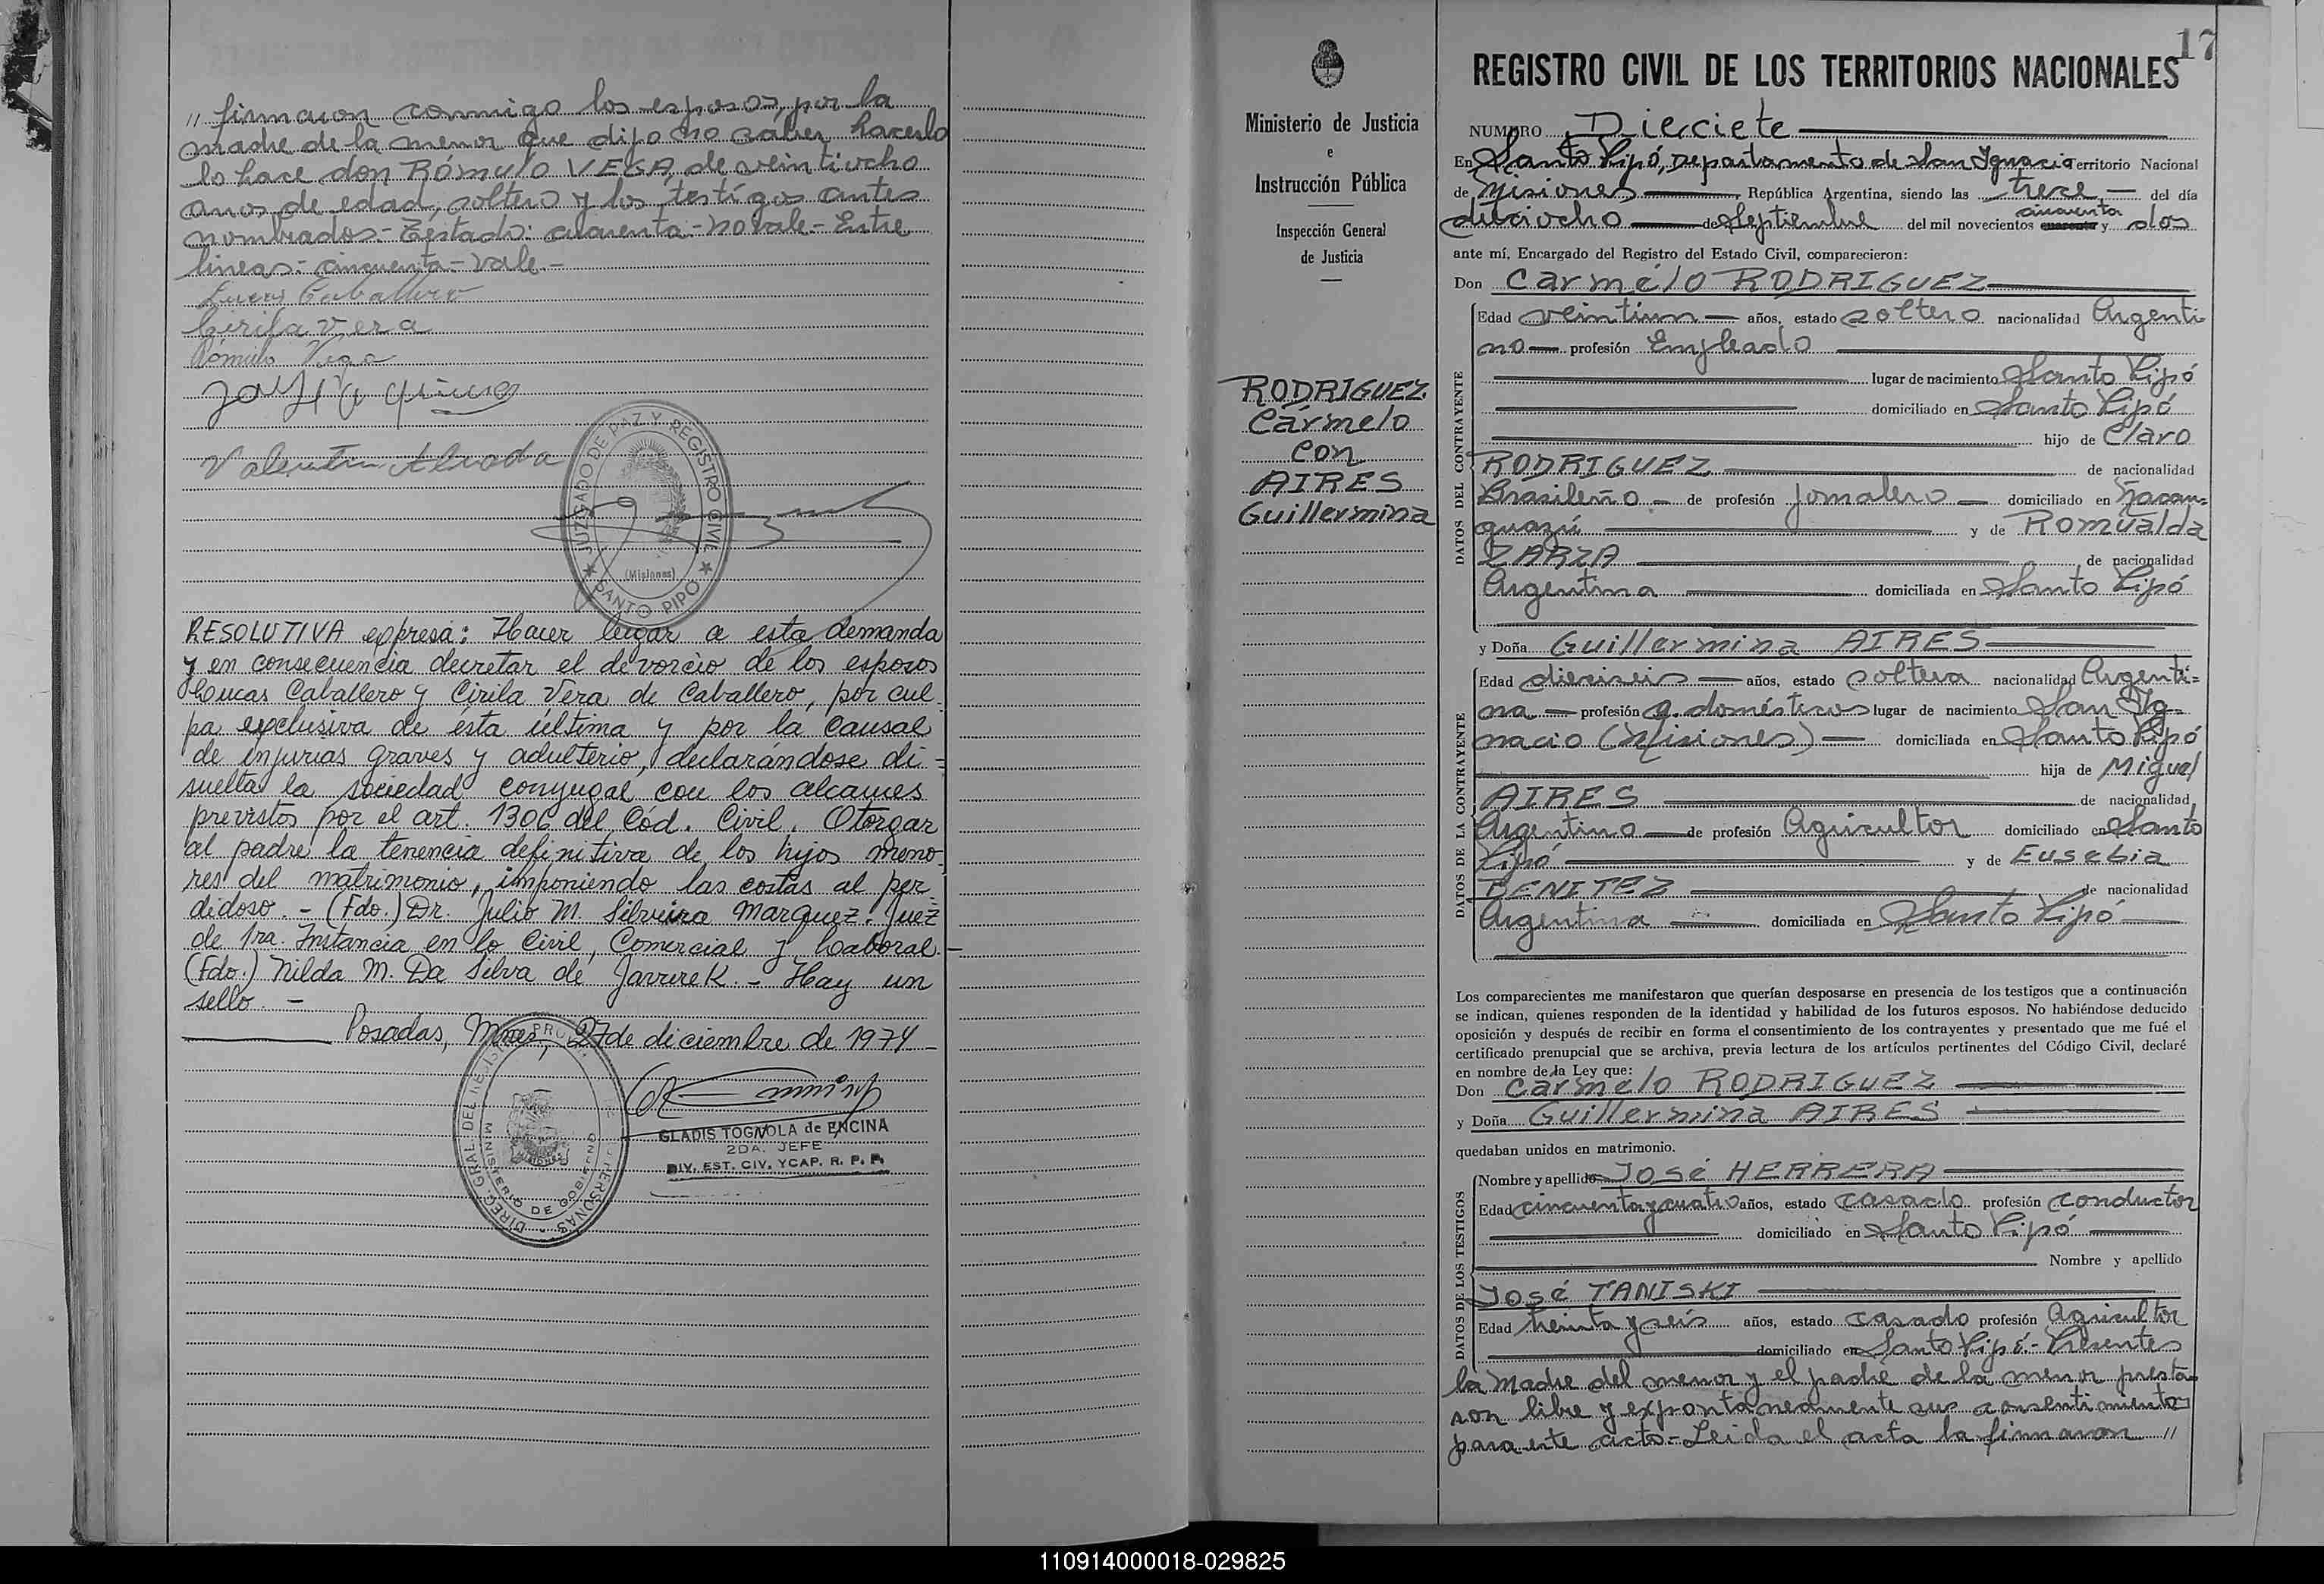 " firmaron conmigo los esposos, por la
madre de la menor que dijo no saber hacerlo
lo hace don RÓMULO VEGA, de veintiocho
anos de edad, soltero y los testigos antes
nombrados.- Testado: cuarenta.- no vale.- Entre
lineas.- cincuenta.- vale.-
Lucas Caballero
Cirila Vera
Rómulo Vega
Valentin Alvada
JUZGADO DE PAZ Y REGISTRO CIVIL
(Misiones)
★ SANTO PIPO ★
RESOLUTIVA expresa: Hacer lugar a esta demanda
y en consecuencia decretar el devorcio de los esposos
Lucas Caballero y Cirila Vera de Caballero, por cul-
pa exclusiva de ésta última y por la causal
de injurias graves y adulterio, declarándose di=
suelta la sociedad conyugal con los alcances
previstos por el art. 1306 del Cód. Civil. Otorgar
al padre la tenencia definitiva de los hijos meno-
res del matrimonio, imponiendo las costas al per-
didoso.- (Fdo.) Dr. Julio M. Silveira Marquez. Juez
de 1ra. Instancia en lo Civil, Comercial y Laboral.-
(Fdo.) Nilda M. Da Silva de Javrirek.- Hay un
sello.-
Posadas, Mnes, 27 de diciembre de 1974-
MINISTERIO DE GOBIERNO
GLADIS TOGNOLA de ENCINA
2DA. JEFE
DIV. EST. CIV. YCAP. R. P. P.
Ministerio de Justicia
e
Instrucción Pública
Inspección General
de Justicia
RODRIGUEZ
Cármelo
con
AIRES
Guillermina
17
REGISTRO CIVIL DE LOS TERRITORIOS NACIONALES
NUMERO Dieciete
En Santo Pipó, Departamento de San Ignacio Territorio Nacional
de Misiones República Argentina, siendo las trece del día
cincuenta
dieciocho de Septiembre del mil novecientos cuarenta y dos
ante mí, Encargado del Registro del Estado Civil, comparecieron:
Don Carmelo RODRIGUEZ
DATOS DEL CONTRAYENTE
Edad veintiun años, estado soltero nacionalidad Argenti
no profesión Empleado
lugar de nacimiento Santo Pipó
domiciliado en Santo Pipó
hijo de Claro
RODRIGUEZ de nacionalidad
Brasileño de profesión Jornalero domiciliado en Ñacan=
guazú y de Romualda
ZARZA de nacionalidad
Argentina domiciliada en Santo Pipó
y Doña Guillermina AIRES
DATOS DE LA CONTRAYENTE
Edad dieciseis años, estado soltera nacionalidad Argenti=
na profesión q. domésticos lugar de nacimiento San Ig=
nacio (Misiones) domiciliada en Santo Pipó
hija de Miguel
AIRES de nacionalidad
Argentino de profesión Agricultor domiciliado en Santo
Pipó y de Eusebia
BENITEZ de nacionalidad
Argentina domiciliada en Santo Pipó
Los comparecientes me manifestaron que querían desposarse en presencia de los testigos que a continuación
se indican, quienes responden de la identidad y habilidad de los futuros esposos. No habiéndose deducido
oposición y después de recibir en forma el consentimiento de los contrayentes y presentado que me fué el
certificado prenupcial que se archiva, previa lectura de los artículos pertinentes del Código Civil, declaré
en nombre de la Ley que:
Don Carmelo RODRIGUEZ
y Doña Guillermina AIRES
quedaban unidos en matrimonio.
DATOS DE LOS TESTIGOS
Nombre y apellido José HERRERA
Edad cincuenta y cuatro años, estado casado profesión conductor
domiciliado en Santo Pipó
Nombre y apellido
José TANISKI
Edad treinta y seis años, estado casado profesión Agricultor
domiciliado en Santo Pipó.- Presentes
la Madre del menor y el padre de la menor presta-
ron libre y expontaneamente sus consentimientos
para este acto.- Leida el acta la firmaron "
110914000018-029825